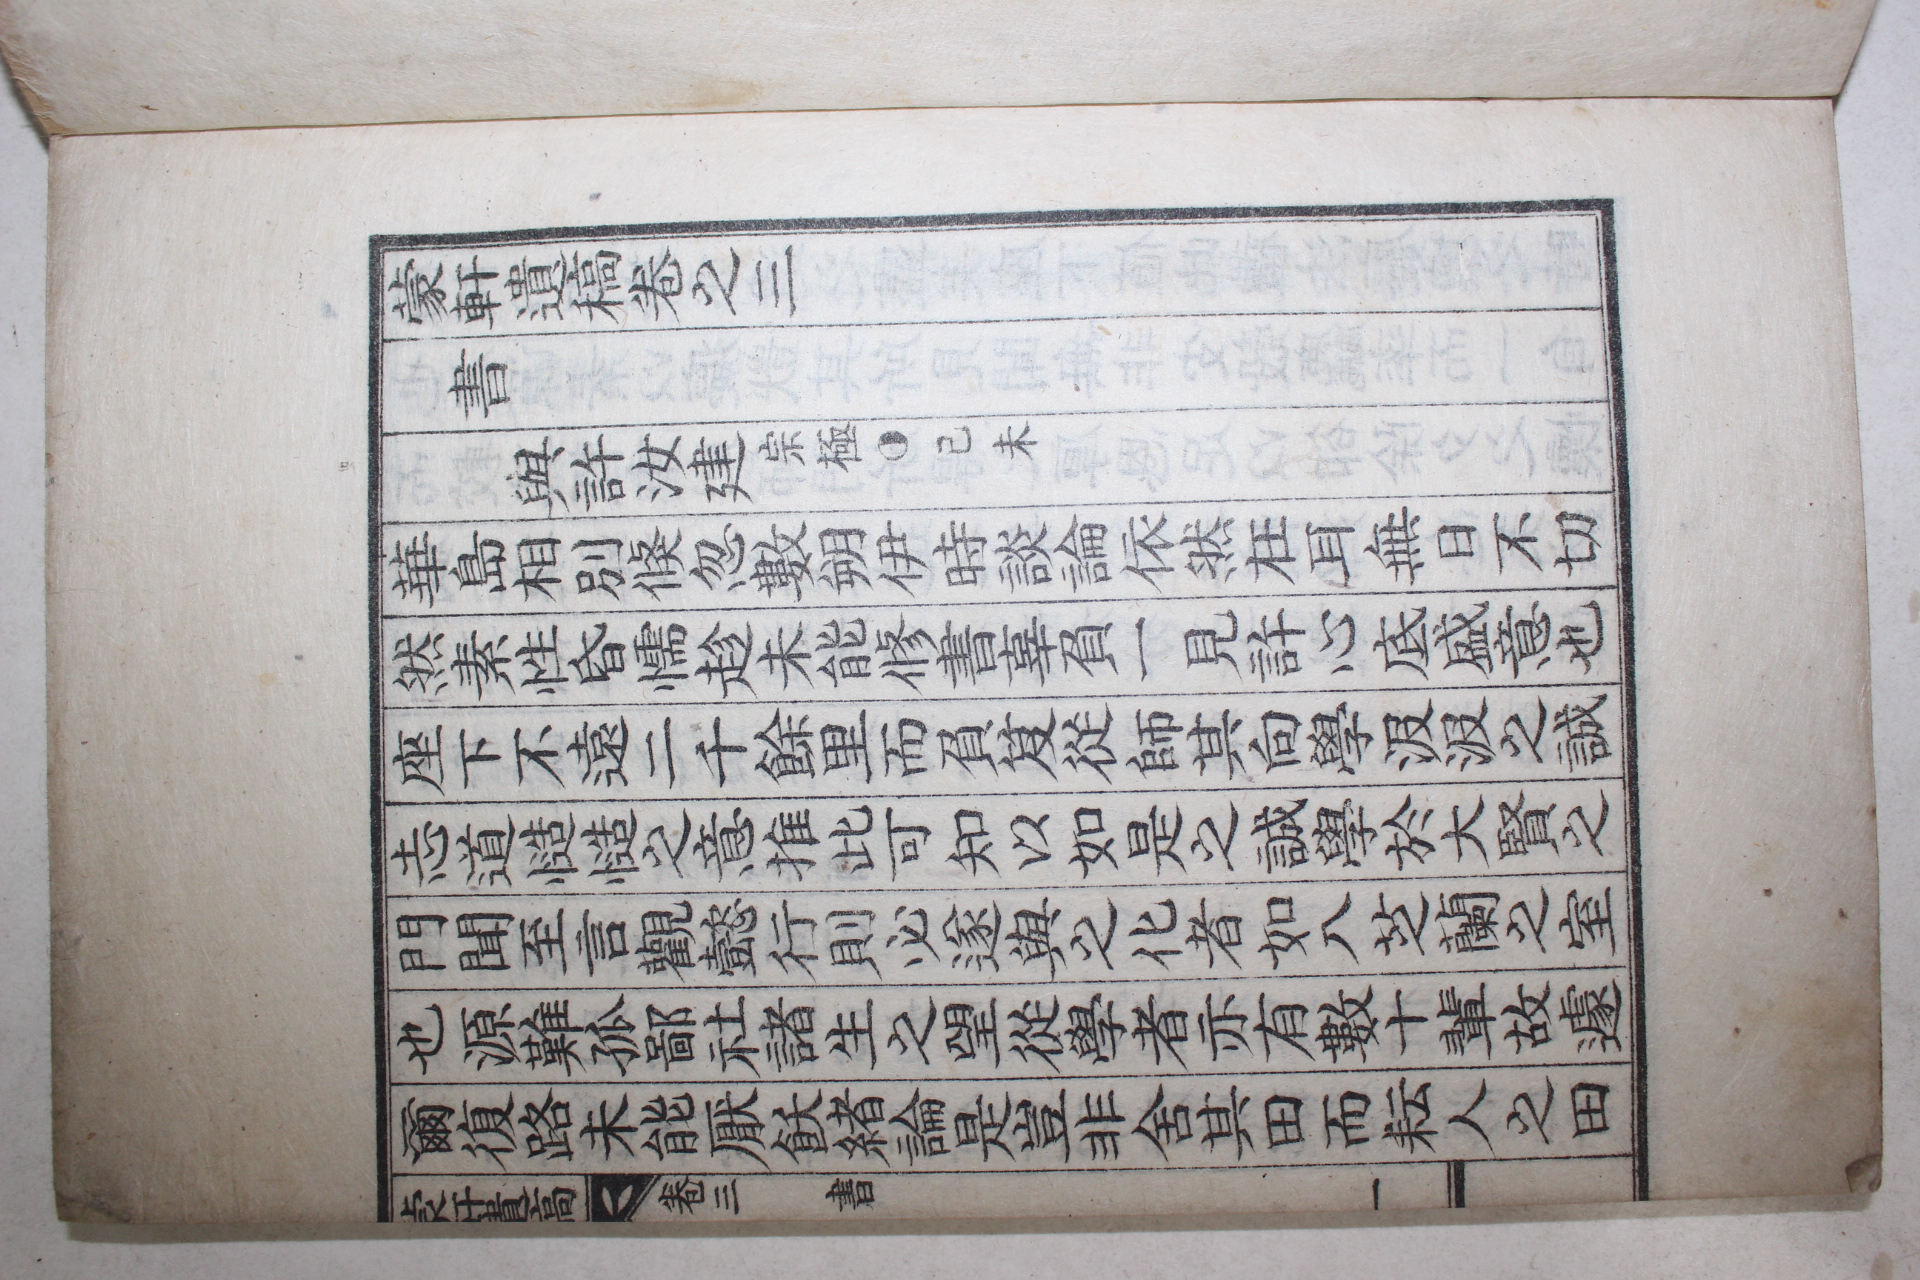 蒙軒遺稿卷之三
書
與許汝建宗極○己未
華島相別倐忽數朔伊時談論依然在耳無日不切
然素性昏懦趁未能修書辜負一見許心底盛意也
座下不遠二千餘里而負笈從師其向學汲汲之誠
志道慥慥之意推此可知以如是之誠學於大賢之
門聞至言觀懿行則必遂與之化者如入芝蘭之室
也源難孤鄙社諸生之望從學者亦有數十輩故遽
爾復路未能厭飫緖論是豈非舍其田而耘人之田
蒙軒遺稿 卷三 書 一